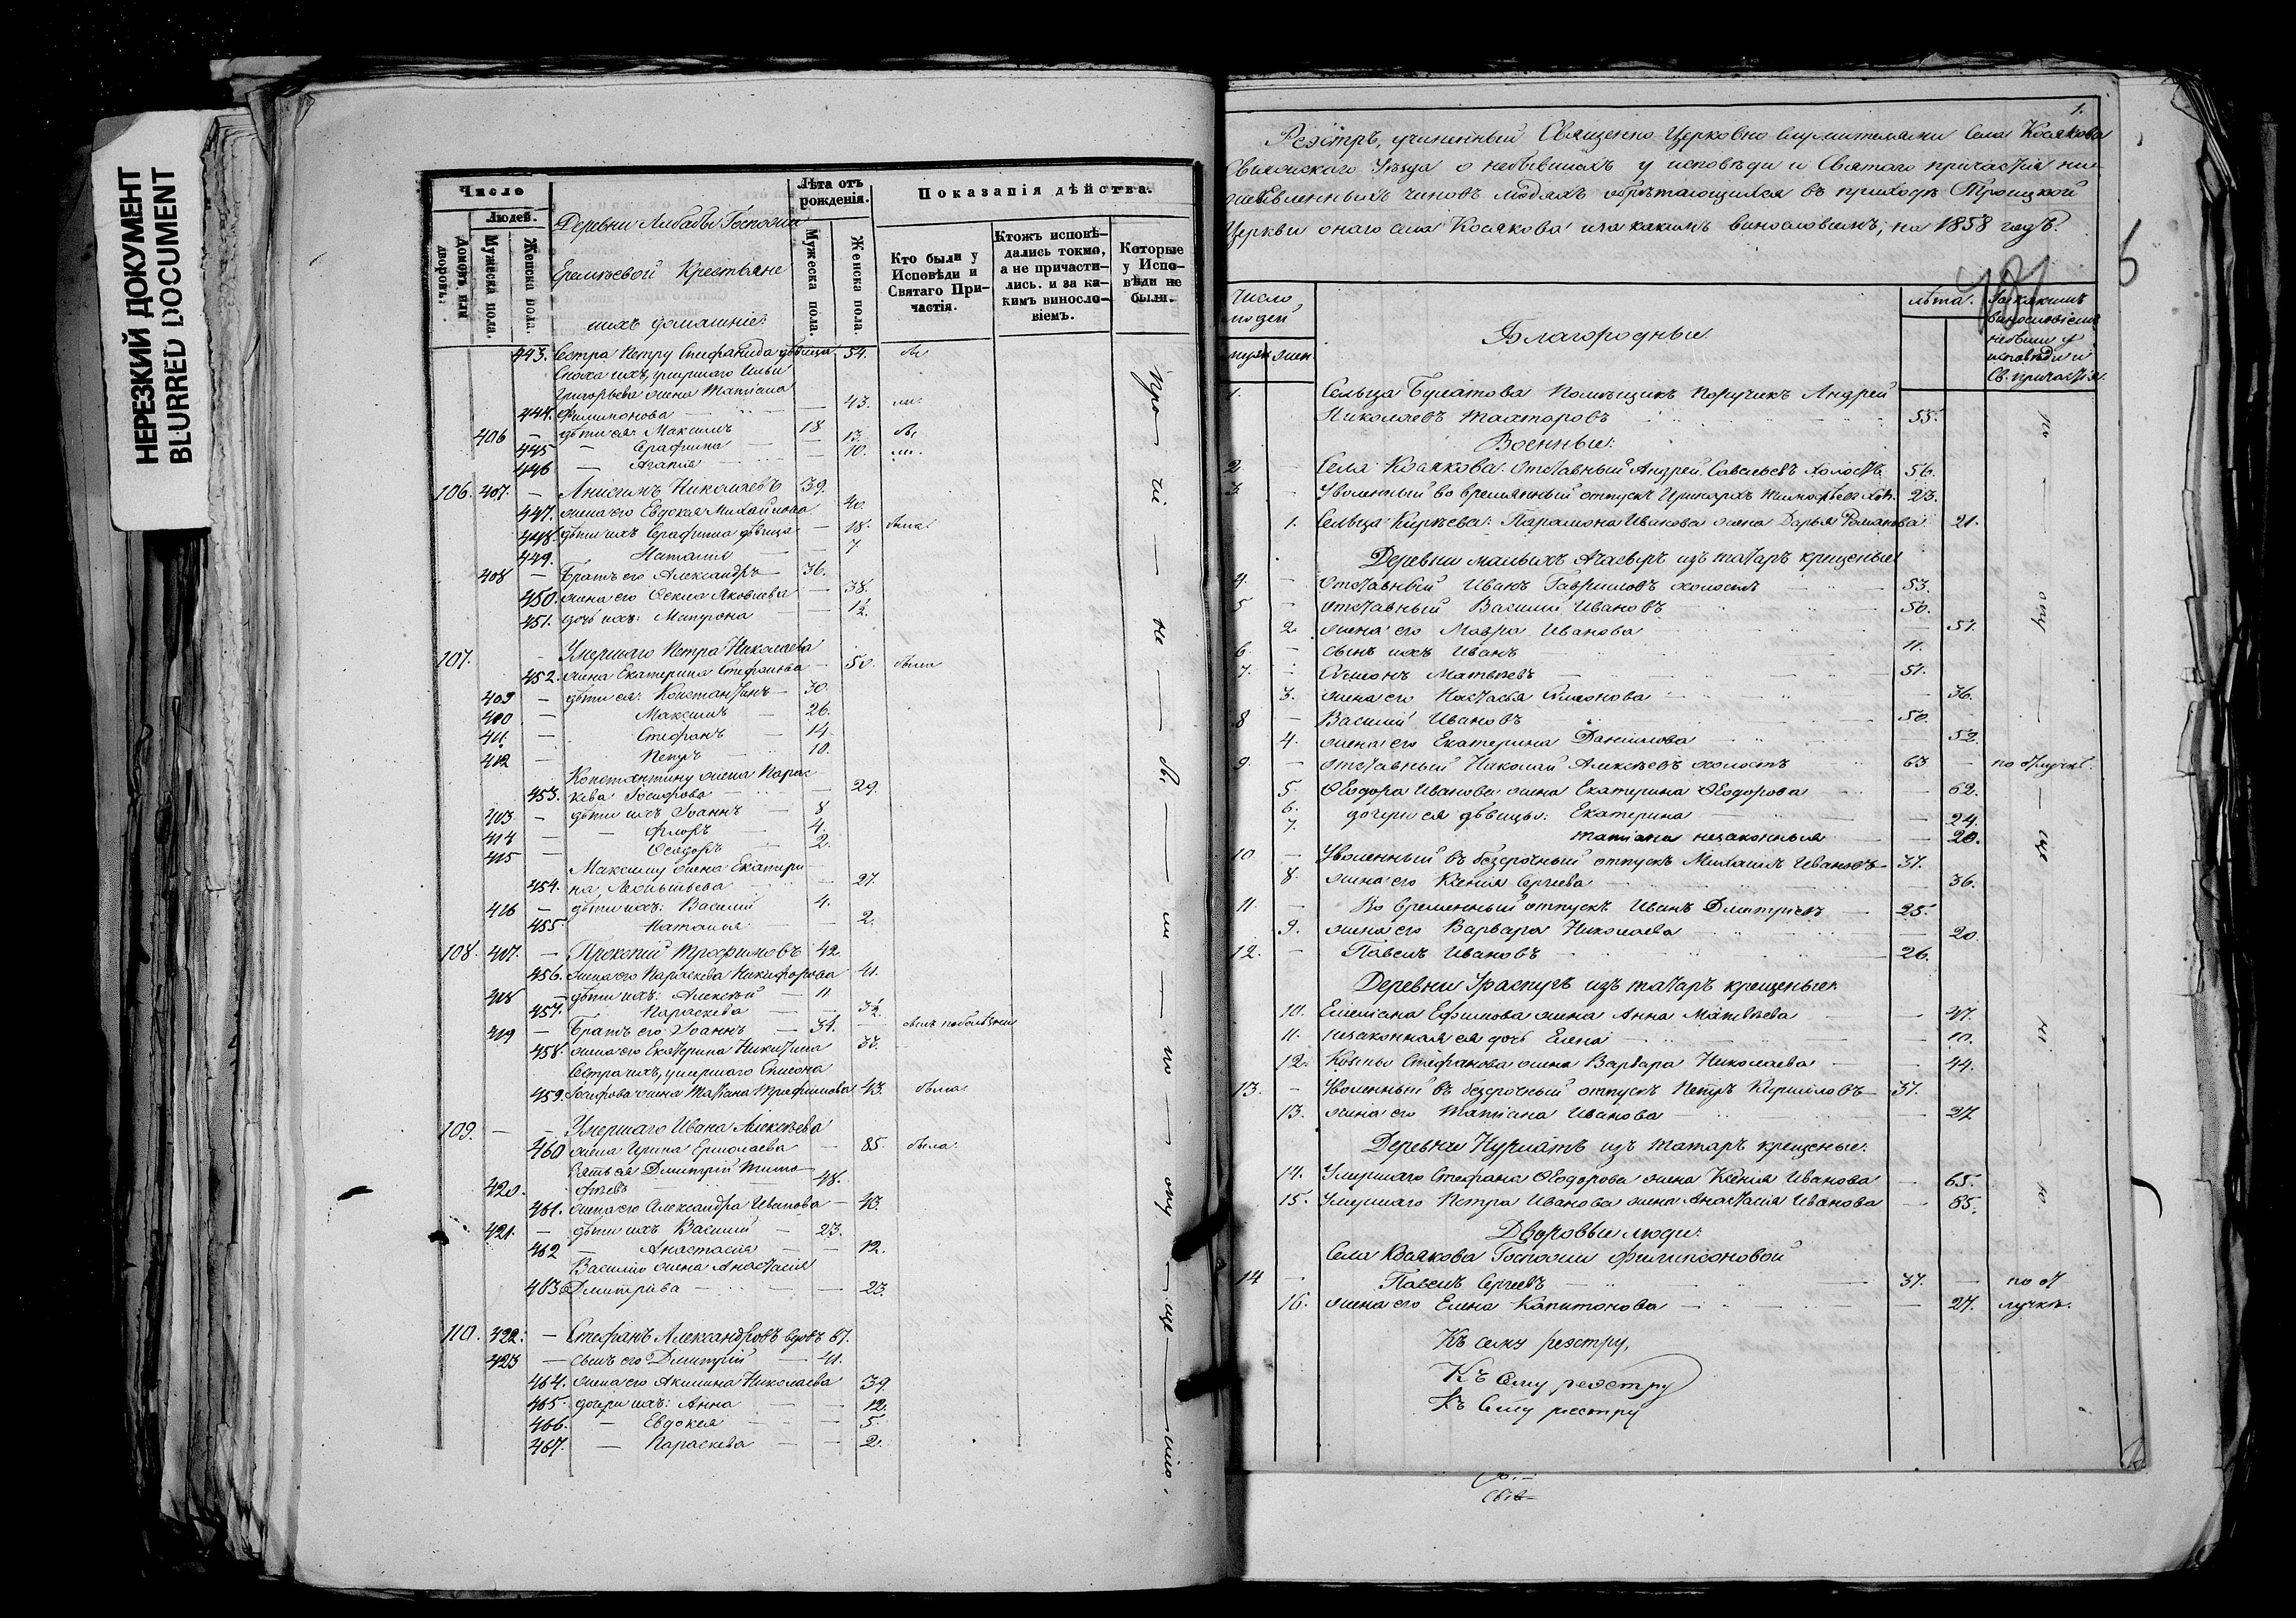 НЕРЕЗКИЙ ДОКУМЕНТ
BLURRED DOCUMENT
Число
Людей.
Домовъ или дворовъ.
Мужеска пола.
Женска пола.
Деревни Госпожи
Еремѣевой Крестьяне
ихъ домашніе:
Лѣта отъ рожденія.
Мужеска пола.
Женска пола.
Показанія дѣйства.
Кто были у Исповѣди и Святаго Причастія.
Ктожъ исповѣдались токмо, а не причастились. и за какимъ винословіемъ.
Которые у Исповѣди не были.
443. Сестра Петру Стефанида дѣвица 54.
Сноха ихъ, умершаго Ильи
Григорьева жена Татіана
444. Филимонова — 43.
406 — дѣти ея: Максимъ 18
445 — Серафима — 13.
446 — Агапія — 10.
106. 407. — Анисимъ Николаевъ 39.
447. жена его Евдокія Михайлова 40.
448. дѣти ихъ Серафима дѣвица — 18. была
449. Наталія — 7.
408 — Братъ его Александръ 36.
450. жена его Фекла Яковлева — 38.
451. дочь ихъ: Матрона — 1½.
107. — Умершаго Петра Николаева
452. жена Екатерина Стефанова — 50. была
409 — дѣти ея: Константинъ — 30.
410 — Максимъ — 26.
411. — Стефанъ — 14.
412 — Петръ — 10.
Константину жена Парас
453. кева Іосифова — 29.
413. — дѣти ихъ Іоаннъ — 8
414 — Флоръ — 4.
415 — Ѳеодоръ — 2.
Максиму жена Екатери
454. на Леонтьева — 27.
416 — дѣти ихъ: Василій 4.
455. Наталія — 2.
108. 417. — Прокопій Трофимовъ 42.
456. жена его Параскева Никифорова 41.
418 — дѣти ихъ: Алексѣй — 11
457. Параскева — 3½.
419 — Братъ его Іоаннъ — 34.
458. жена его Екатерина Никитина 33.
Сестра ихъ, умершаго Симона
459. Іосифова жена Татіана Трофимова 43. была
109. — Умершаго Ивана Алексѣева
460 жена Ирина Ермолаева — 85. была.
Зять ея Дмитрій Тимо
420. фѣевъ 48.
461. жена его Александра Иванова — 43.
421. — дѣти ихъ Василій — 23.
462 — Анастасія — 12.
Василію жена Анастасія
463 Дмитріева — 23.
110. 422. — Стефанъ Александровъ вдовъ 67.
423 — сынъ его Дмитрій — 41.
464. жена его Акилина Николаева 39.
465. дочери ихъ: Анна — 12.
466. — Евдокія — 5.
467. — Параскева — 2.
1.
Реэстръ, учиненный Священно-Церковно служителями села Косякова
Свіяжскаго Уѣзда о небывшихъ у исповѣди и Святаго причастія ни-
жеявленныхъ чиновъ людяхъ обрѣтающихся въ приходѣ Троицкой
Церкви онаго села Косякова и за какимъ винословіемъ, на 1858 годъ.
6
Число людей
муж. жен.
Благородные.
лѣта.
За какимъ винословіемъ небыли у исповѣди и Св. причастія.
1. Сельца Булатова Помѣщикъ Поручикъ Андрей
Николаевъ Тахтаровъ 55.
Военные:
2 — Села Косякова: Отставный Андрей Савельевъ холостъ 56.
3. — Уволенный во временный отпускъ 23.
1. Сельца Кирѣева: Парамона Иванова жена Дарья Романова 21.
Деревни малыхъ Ачасыръ изъ татаръ крещеные
4. — Отставный Иванъ Гавриловъ холостъ — 53.
5 — отставный Василій Ивановъ — 50.
2. жена его Мавра Иванова — 51.
6. — сынъ ихъ Иванъ — 11.
7. — Симонъ Матвѣевъ — 51.
3. жена его Настасья Симонова — 36.
8 — Василій Ивановъ — 50.
4. жена его Екатерина Данилова — 52.
9. — отставный Николай Алексѣевъ холостъ 63 — по отлучкѣ.
5. Ѳеодора Иванова жена Екатерина Ѳеодорова — 62.
6. дочери ея дѣвицы: Екатерина — 24.
7. Татіана незаконныя — 20.
10 — Уволенный въ безсрочный отпускъ Михаилъ Ивановъ 37.
8. жена его Ксенія Сергѣева — 36.
11. — Во временный отпускъ Иванъ Дмитріевъ — 25.
9. жена его Варвара Николаева — 20.
12. — Павелъ Ивановъ — 26.
Деревни Ураспугъ изъ татаръ крещеные:
10. Емеліана Ефимова жена Анна Матвѣева — 47.
11. незаконная ея дочь Елена — 10.
12. Козьмы Стефанова жена Варвара Николаева — 44.
13. — Уволенный въ безсрочный отпускъ Петръ Кириловъ 37.
13. жена его Татіана Иванова — 27.
Деревни Нурлатъ изъ татаръ крещеные:
14. Умершаго Стефана Ѳеодорова жена Ксенія Иванова — 65.
15. Умершаго Петра Иванова жена Анастасія Иванова — 85.
Дворовые люди:
Села Косякова Госпожи Филипсоновой
14 — Павелъ Сергѣевъ — 37. — по от
16. жена его Елена Капитонова — 27. лучкѣ.
Къ сему реэстру,
Къ сему реэстру
Къ сему реэстру